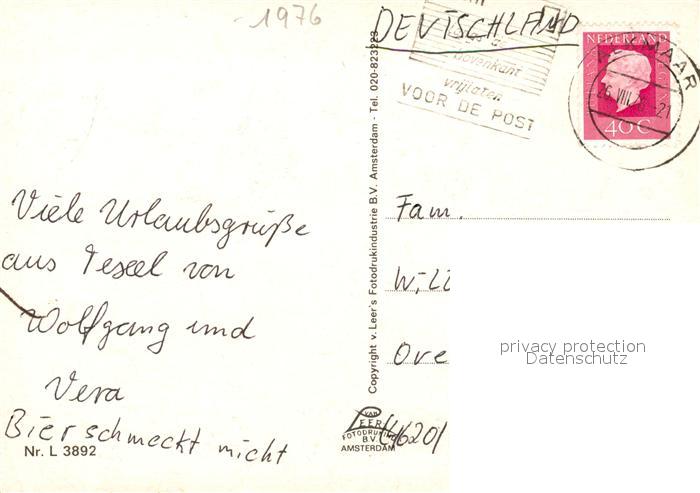 -1976
DEUTSCHLAND
bovenkant
vrijlaten
VOOR DE POST
NEDERLAND
40C
ALKMAAR
26.VIII.76.-21
Copyright v. Leer's Fotodrukindustrie B.V. Amsterdam - Tel. 020-823223
Viele Urlaubsgrüße
aus Texel von
Wolfgang und
Vera
Bier schmeckt nicht
Nr. L 3892
Fam.
Will
Ove
VAN
LEER
FOTODRUKIND.
B.V.
AMSTERDAM
4620/
privacy protection
Datenschutz